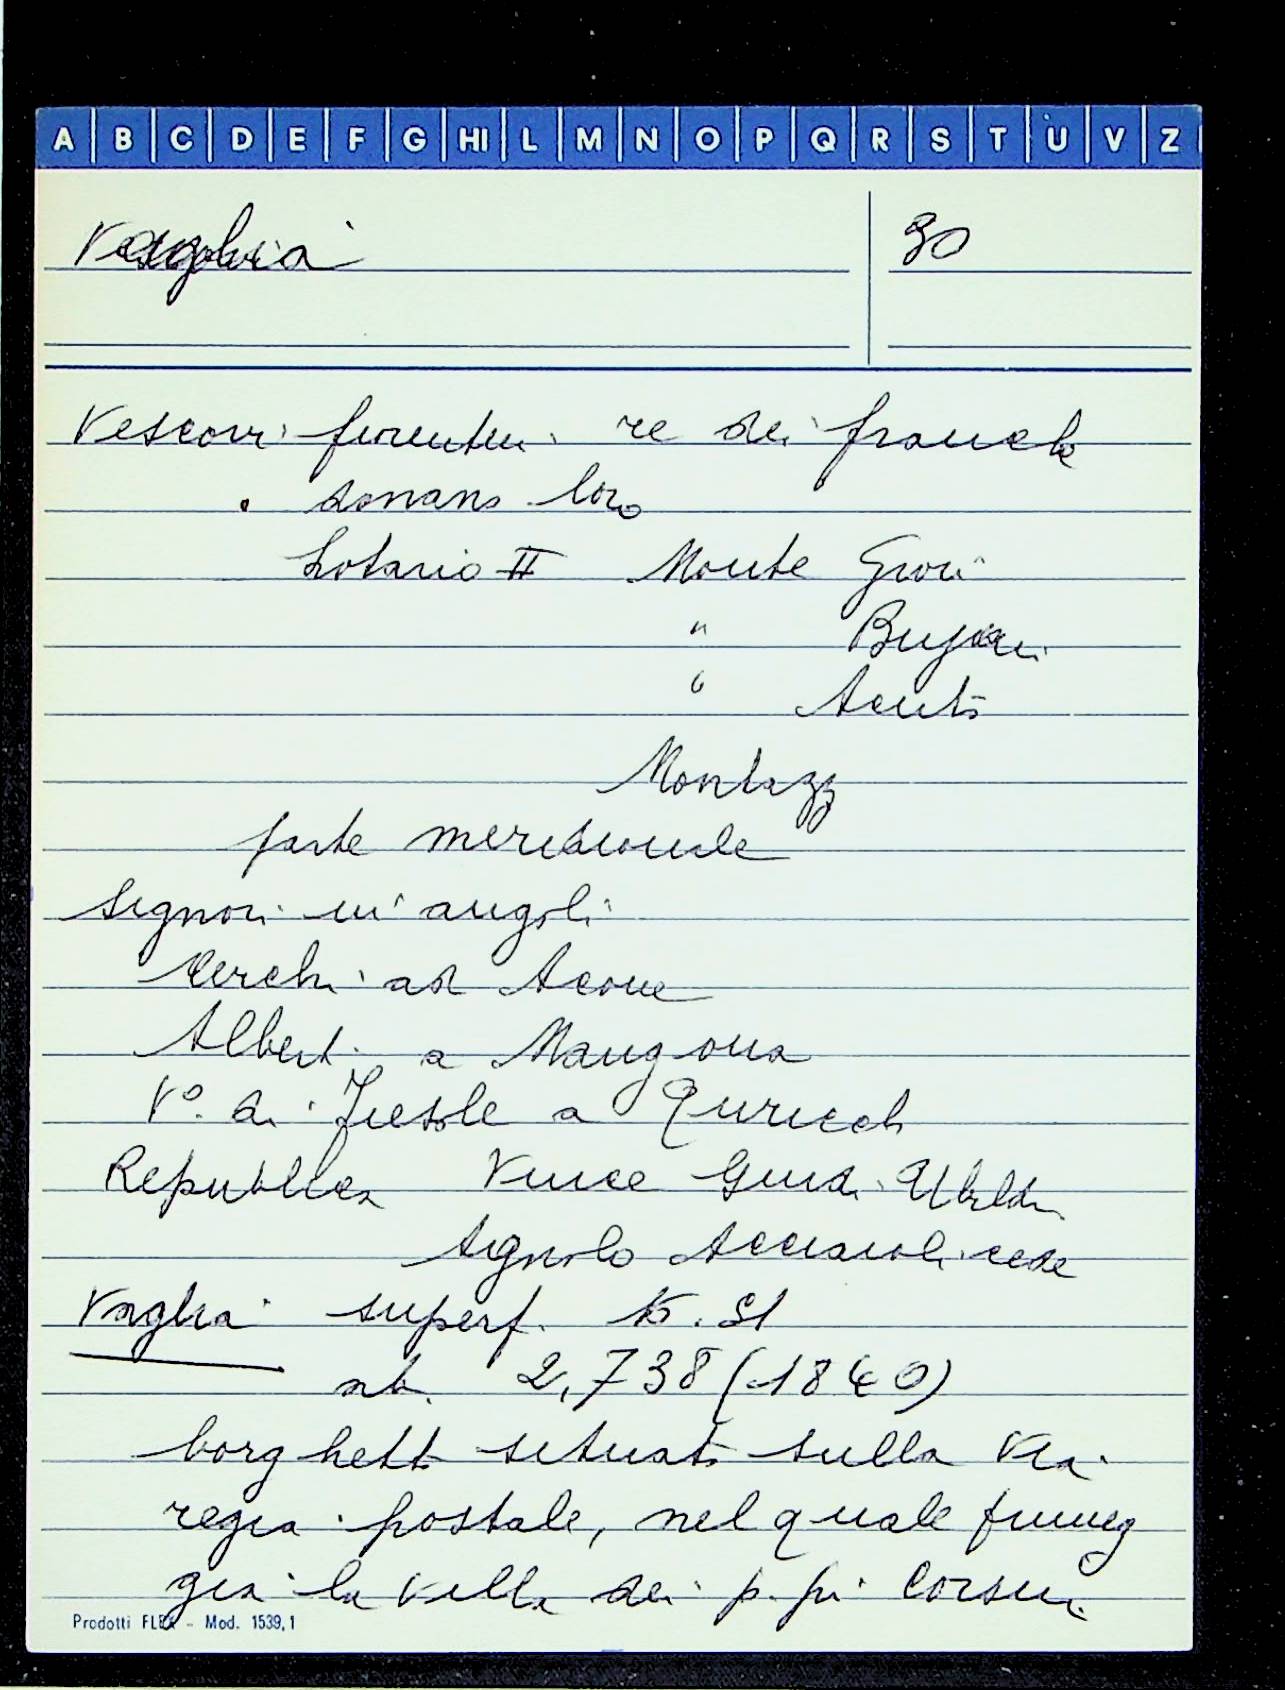 A B C D E F G HI L M N O P Q R S T U V Z
Vaglia 30
Vescovi fiorentini re dei franchi
donano loro
Lotario II Monte Giovi
" Bujani
" Acuto
Montazzi
parte meridionale
Signori in angoli
Cerchi ad Acone
Alberti a Mangona
Vº. di Fiesole a Quricchi
Repubblica Vince Guidi Ubaldini
Agnolo Acciaioli cede
Vaglia superf. K. 51
ab. 2,738 (1840)
borghetto situato sulla Via
regia postale, nel quale fumeg
gia la villa dei p.pi Corsini
Prodotti FLEX - Mod. 1539,1